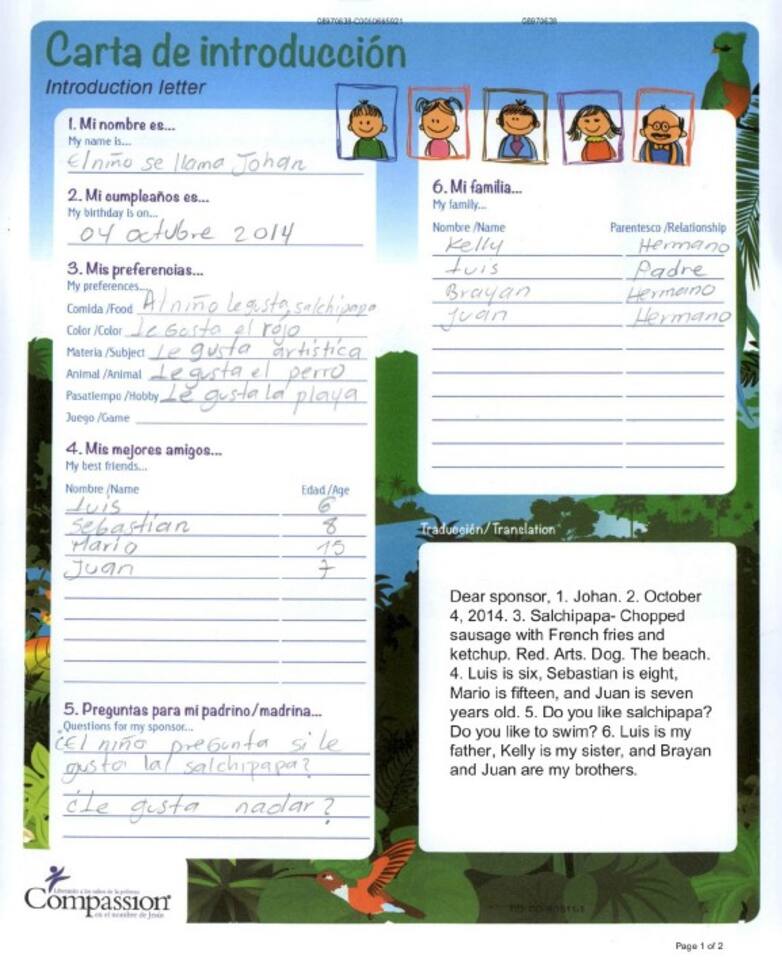 08970638-C0060665921 08970638
Carta de introducción
Introduction letter
1. Mi nombre es...
My name is...
El niño se llama Johan
2. Mi cumpleaños es...
My birthday is on...
04 octubre 2014
3. Mis preferencias...
My preferences...
Comida /Food Al niño le gusta salchipapa
Color /Color Le gosta el rojo
Materia /Subject Le gusta artistica
Animal /Animal Le gusta el perro
Pasatiempo /Hobby Le gusta la playa
Juego /Game
4. Mis mejores amigos...
My best friends...
Nombre /Name Edad /Age
Luis 6
Sebastian 8
Mario 15
Juan 7
5. Preguntas para mi padrino/madrina...
Questions for my sponsor...
¿El niño pregunta si le
gusta la salchipapa?
¿Le gusta nadar?
6. Mi familia...
My family...
Nombre /Name Parentesco /Relationship
Kelly Hermano
Luis Padre
Brayan Hermano
Juan Hermano
Traducción/Translation
Dear sponsor, 1. Johan. 2. October
4, 2014. 3. Salchipapa- Chopped
sausage with French fries and
ketchup. Red. Arts. Dog. The beach.
4. Luis is six, Sebastian is eight,
Mario is fifteen, and Juan is seven
years old. 5. Do you like salchipapa?
Do you like to swim? 6. Luis is my
father, Kelly is my sister, and Brayan
and Juan are my brothers.
Liberando a los niños de la pobreza
Compassion
en el nombre de Jesús
Page 1 of 2